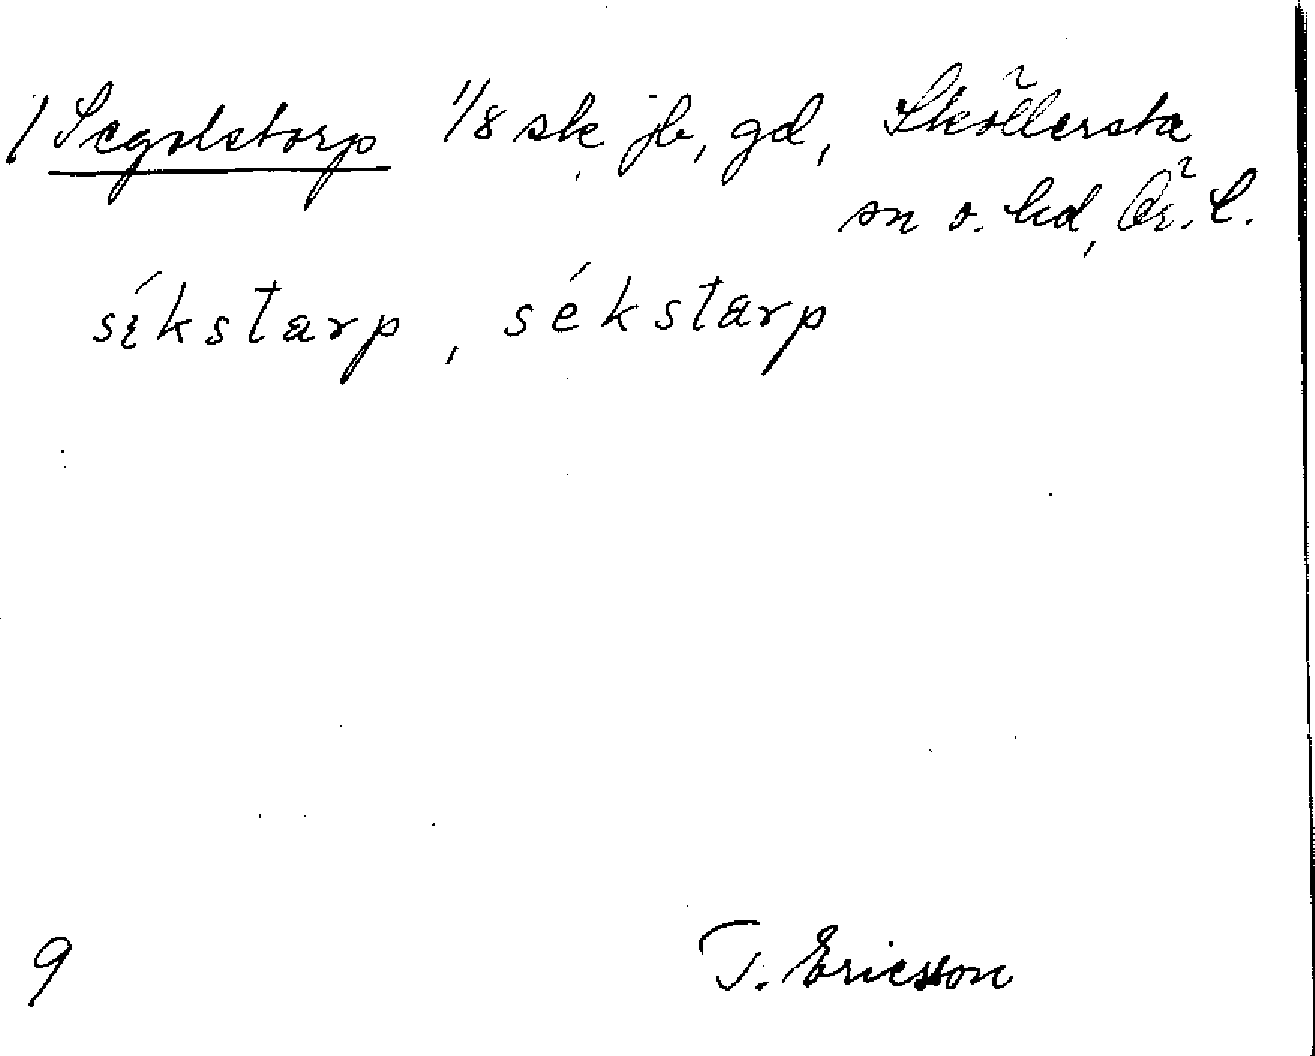 / Segolstorp 1/8 sk jb, gd, Sköllersta
sn o. hd, Ör. l.
sékstarp, sékstarp
9
T. Ericsson